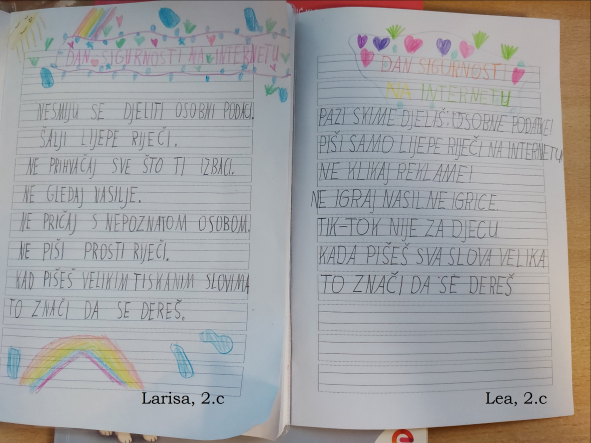 DAN SIGURNOSTI NA INTERNETU
NESMIJU SE DJELITI OSOBNI PODACI.
ŠALJI LIJEPE RIJEČI.
NE PRIHVAĆAJ SVE ŠTO TI IZBACI.
NE GLEDAJ NASILJE.
NE PRIČAJ S NEPOZNATOM OSOBOM.
NE PIŠI PROSTI RIJEČI.
KAD PIŠEŠ VELIKIM TISKANIM SLOVIMA
TO ZNAČI DA SE DEREŠ.
Larisa, 2.c
DAN SIGURNOSTI
NA INTERNETU
PAZI S KIME DJELIŠ OSOBNE PODATKE!
PIŠI SAMO LIJEPE RIJEČI NA INTERNETU
NE KLIKAJ REKLAME!
NE IGRAJ NASILNE IGRICE
TIK-TOK NIJE ZA DJECU
KADA PIŠEŠ SVA SLOVA VELIKA
TO ZNAČI DA SE DEREŠ
Lea, 2.c